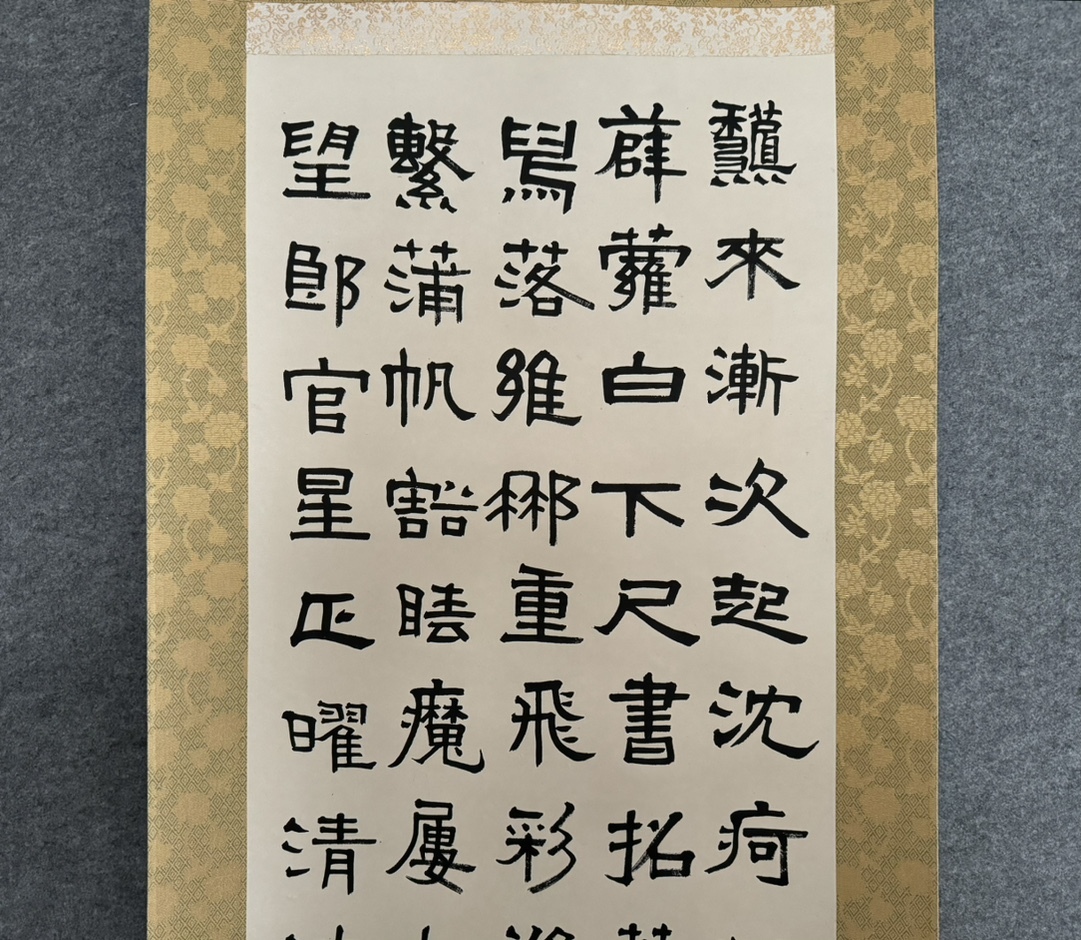 來漸次起沈疴
薜蘿白下尺書拓
落維郴重飛彩
繫蒲帆豁睫魔屢
望郎官星正曜清